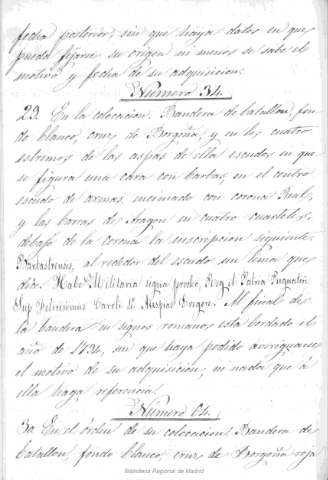 fecha posterior, sin que haya datos en que
pueda fijarse su origen ni menos se sabe el
motivo y fecha de su adquisicion.
Número 34.
29. En la colocacion. Bandera de batallon, fon
do blanco, cruz de Borgoña, y en los cuatro
estremos de las aspas de ella escudos en que
se figura una cara con barbas, en el centro
escudo de armas, encimado con corona Real,
y las barras de Aragon en cuatro cuarteles,
debajo de la corona la inscripcion siguiente:
Barbastrensis, al rededor del escudo un lema que
dice. Habe Militaria signa probe, Reg et Patria Pugnatin
Sup Felicisimus Caroli Auspias Origen. Al final de
la bandera en signos romanos, esta bordado el
año de 1734, sin que haya podido averiguarse
el motivo de su adquisicion, ni nada que á
ella haga referencia.
Número 64.
30. En el órden de su colocacion. Bandera de
batallon, fondo blanco, cruz de Borgoña roja
Biblioteca Regional de Madrid